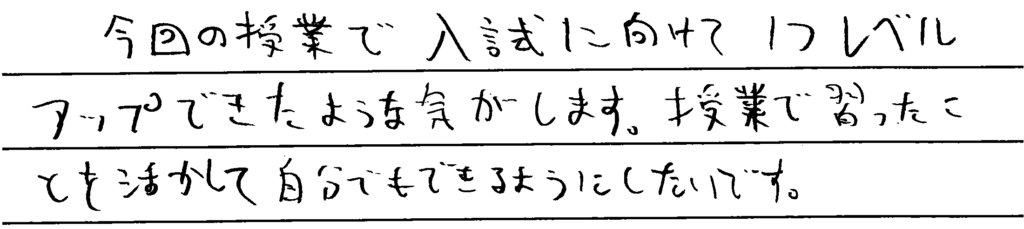 今回の授業で入試に向けて1つレベル
アップできたような気がします。授業で習ったこ
とを活かして自分でもできるようにしたいです。